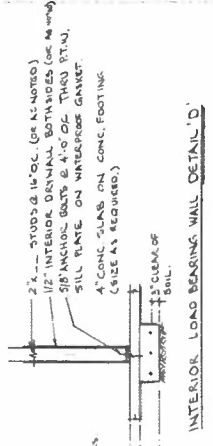 2"x __ STUDS @ 16" O.C. (OR AS NOTED)
1/2" INTERIOR DRYWALL BOTH SIDES (OR AS NOTED)
5/8" ANCHOR BOLTS @ 4'-0" OC THRU P.T.W.
SILL PLATE ON WATERPROOF GASKET.
4" CONC. SLAB ON CONC. FOOTING
(SIZE AS REQUIRED.)
3" CLEAR OF
SOIL.
INTERIOR LOAD BEARING WALL DETAIL 'D'